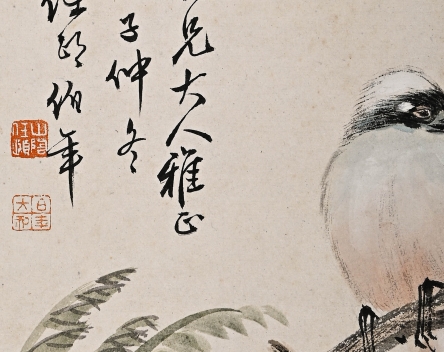 兄大人雅正
子仲冬
任頤伯年
山陰任頤